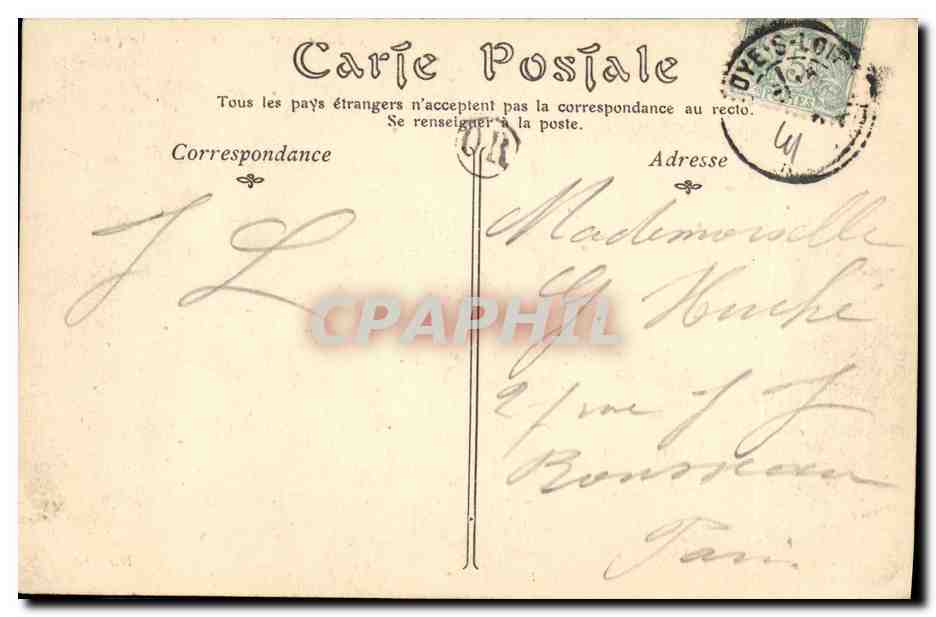 Carte Postale
Tous les pays étrangers n'acceptent pas la correspondance au recto.
Se renseigner à la poste.
Correspondance
Adresse
OR
POSTES
41
J L
Mademoiselle
G. Huché
21 rue J J
Rousseau
Paris
CPAPHIL